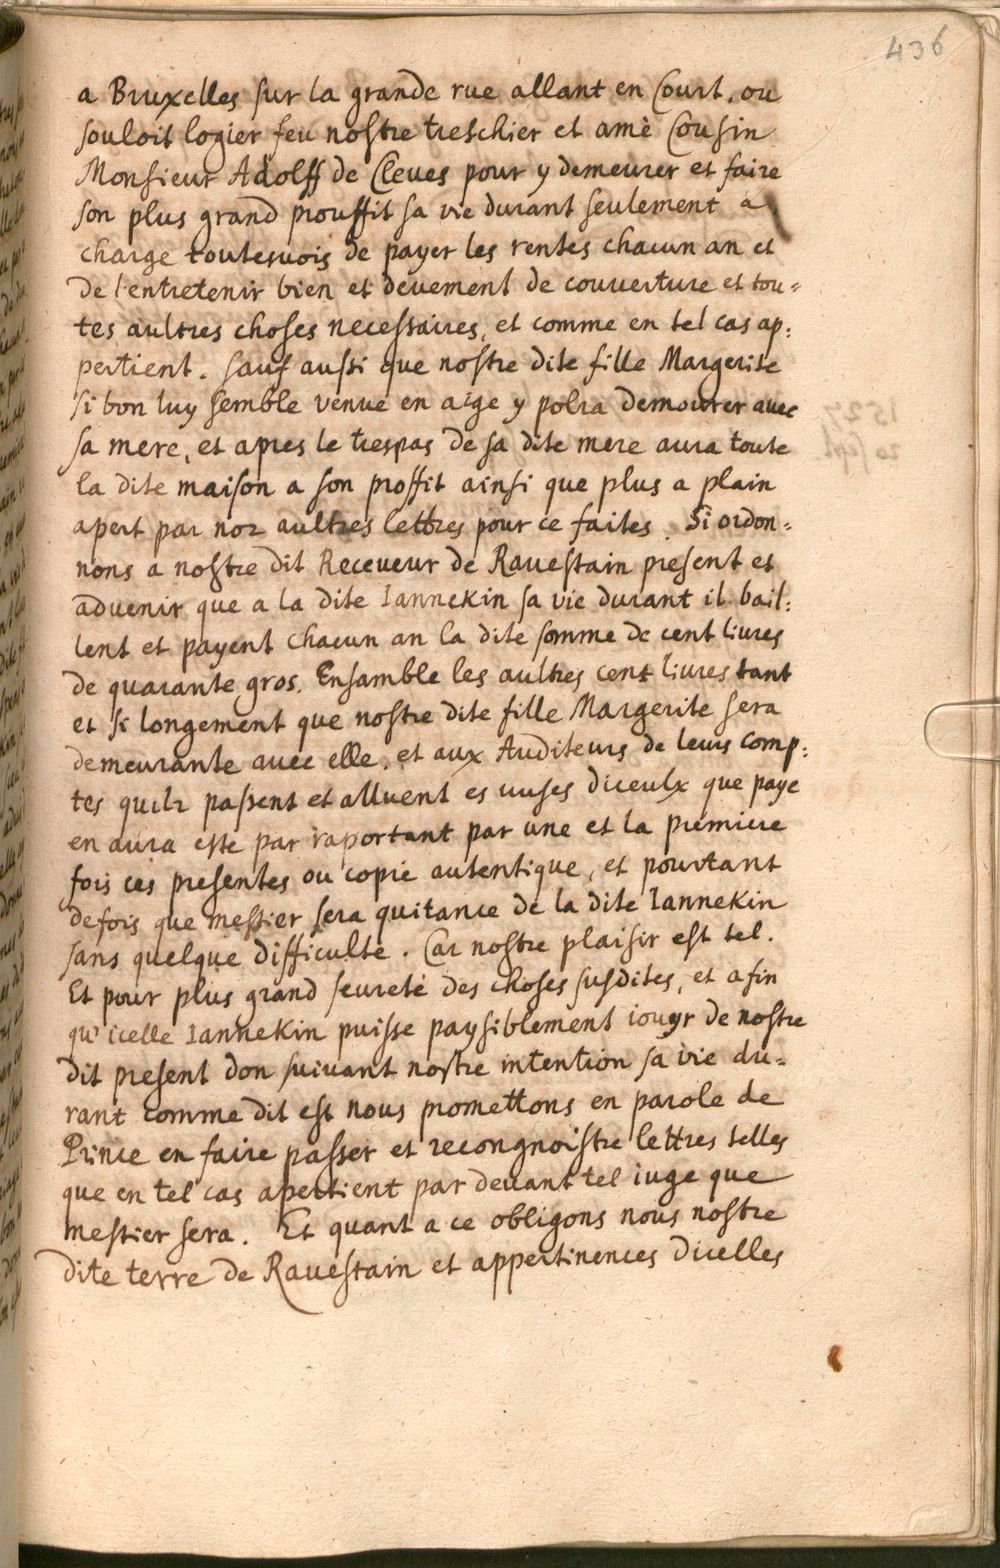 436
a Bruxelles sur la grande rue allant en Court, ou
souloit logier feu nostre treschier et amè Cousin
Monsieur Adolff de Cleves pour y demeurer et faire
son plus grand prouffit sa vie durant seulement a
charge toutesvois de payer les rentes chacun an et
de l'entretenir bien et deuement de couverture et tou=
tes aultres choses necessaires, et comme en tel cas ap=
pertient. sauf aussi que nostre dite fille Margerite
si bon luy semble venue en aige y polra demourer avec
sa mere, et apres le trespas de sa dite mere aura toute
la dite maison a son proffit ainsi que plus a plain
apert par noz aultres lettres pour ce faites. Si ordon=
nons a nostre dit Receveur de Ravestain present et
advenir que a la dite Iannekin sa vie durant il bail=
lent et payent chacun an la dite somme de cent livres
de quarante gros. Ensamble les aultres cent livres tant
et si longement que nostre dite fille Margerite sera
demeurante avec elle. et aux Auditeurs de leurs comp=
tes quilz passent et alluent es mises diceulx que paye
en aura este par raportant par une et la premiere
fois ces presentes ou copie autentique, et pourtant
defois que mestier sera quitance de la dite Iannekin
sans quelque difficulté. Car nostre plaisir est tel.
Et pour plus grand seureté des choses susdites, et afin
qu'icelle Iannekin puisse paysiblement iouyr de nostre
dit present don suivant nostre intention sa vie du=
rant comme dit est nous promettons en parole de
Prince en faire passer et recongnoistre lettres telles
que en tel cas apertient par devant tel iuge que
mestier sera. Et quant a ce obligons nous nostre
dite terre de Ravestain et appertinences dicelles